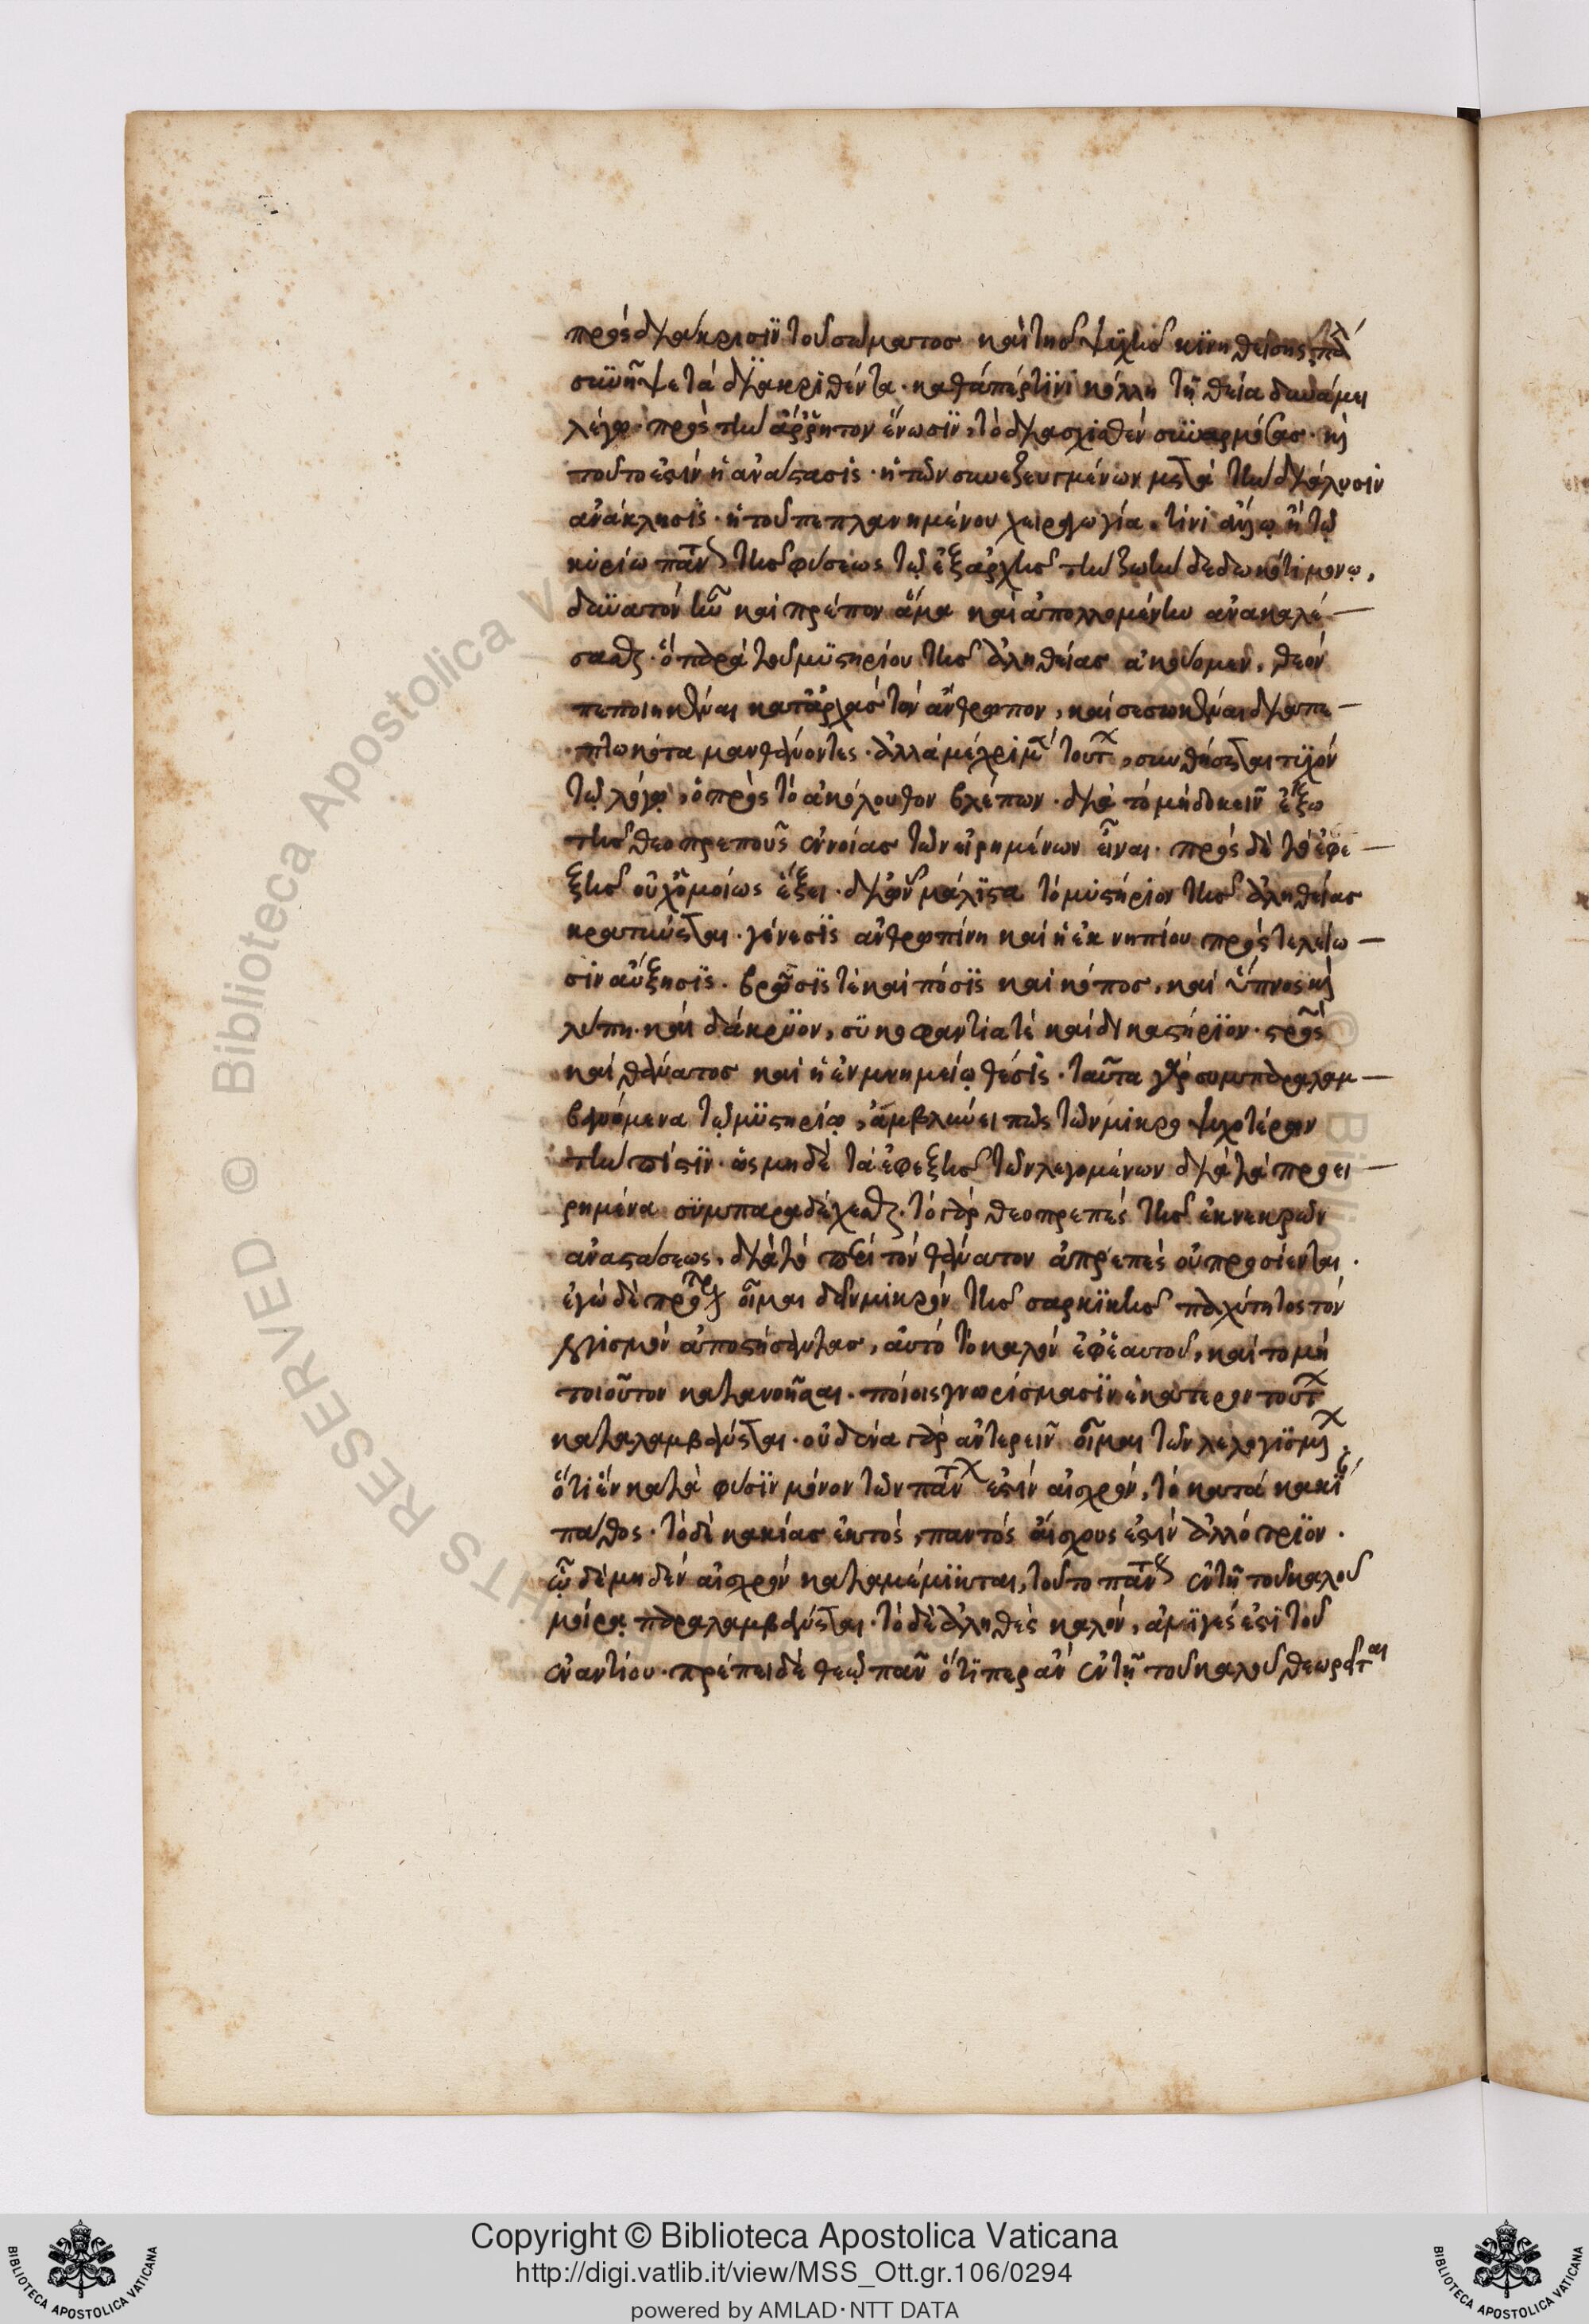 πρὸς διάκρισιν τοῦ σώματος καὶ τῆς ψυχῆς κινηθείσης πά
συνῆψε τὰ διακριθέντα· καθάπερ τινὶ κόλλη τῆ θεία δυνάμει
λέγω· πρὸς τὴν ἄρρητον ἕνωσιν, τὸ διασχισθὲν συναρμόσας· καὶ
τοῦτο ἐστὶν ἡ ἀνάστασις· ἡ τῶν συνεζευγμένων μετὰ τὴν διάλυσιν
ἀνάκλησις· ἡ τοῦ πεπλανημένου χειραγωγία. τίνι ἄλλῳ ἢ τῷ
κυρίω παντὸς τῆς φύσεως τῷ ἐξαρχῆς τὴν ζωὴν δεδωκότι μόνῳ,
δυνατὸν ἦν καὶ πρέπον ἅμα καὶ ἀπολλομένην ἀνακαλέ-
σασθαι· ὃ παρὰ τοῦ μυστηρίου τῆς ἀληθείας ἀκούομεν, θεὸν
πεποιηκέναι καταρχὰς τὸν ἄνθρωπον, καὶ σεσωκέναι διαπε-
πτωκότα μανθάνοντες. ἀλλὰ μέχρι μὲν τούτων, συνθήσεται τυχὸν
τῷ λόγῳ, ὁ πρὸς τὸ ἀκόλουθον βλέπων· διὰ τὸ μὴ δοκεῖν ἔξω
τῆς θεοπρεποῦς ἐννοίας τῶν εἰρημένων εἶναι· πρὸς δὲ τὰ ἐφε-
ξῆς οὐχ ὁμοίως ἕξει· δι' ὧν μάλιστα τὸ μυστήριον τῆς ἀληθείας
κρατύνεται· γένεσις ἀνθρωπίνη καὶ ἡ ἐκ νηπίου πρὸς τελείω-
σιν αὔξησις. βρῶσίς τε καὶ πόσις καὶ κόπος, καὶ ὕπνος καὶ
λύπη· καὶ δάκρυον, συκοφαντία τὲ καὶ δικαστήριον· σταυρὸς
καὶ θάνατος καὶ ἡ ἐν μνημείῳ θέσις· ταῦτα γὰρ συμπαραλαμ-
βανόμενα τῷ μυστηρίῳ, ἀμβλύνει πῶς τῶν μικροψυχοτέρων
τὴν πίστιν· ὡς μηδὲ τὰ ἐφεξῆς τῶν λεγομένων διὰ τὰ προει-
ρημένα συμπαραδέχεσθαι· τὸ γὰρ θεοπρεπὲς τῆς ἐκ νεκρῶν
ἀναστάσεως, διὰ τὸ περὶ τὸν θάνατον ἀπρεπὲς οὐ προσίενται.
ἐγὼ δὲ πρότερον οἶμαι δεῖν μικρὸν τῆς σαρκικῆς παχύτητος τὸν
λογισμὸν ἀποστήσαντας, αὐτὸ τὸ καλὸν ἐφ' ἑαυτοῦ, καὶ τὸ μὴ
τοιοῦτον κατανοῆσαι. ποίοις γνωρίσμασιν ἑκάτερον τούτων
καταλαμβάνεται· οὐδένα γὰρ ἀντερεῖν οἶμαι τῶν λελογισμένων.
ὅτι ἓν κατὰ φύσιν μόνον τῶν πάντων ἐστὶν αἰσχρόν, τὸ κατὰ κακίαν
πάθος· τὸ δὲ κακίας ἐκτός, παντὸς αἴσχους ἐστὶν ἀλλότριον.
ᾧ δὲ μηδὲν αἰσχρὸν καταμέμικται, τοῦτο πάντως ἐν τῆ τοῦ καλοῦ
μοίρᾳ παραλαμβάνεται· τὸ δὲ ἀληθὲς καλόν, ἀμιγές ἐστι τοῦ
ἐναντίου. πρέπει δὲ θεῷ πᾶν ὅτιπερ ἂν ἐν τῇ τοῦ καλοῦ θεωρεῖται
Copyright © Biblioteca Apostolica Vaticana
http://digi.vatlib.it/view/MSS_Ott.gr.106/0294
powered by AMLAD·NTT DATA